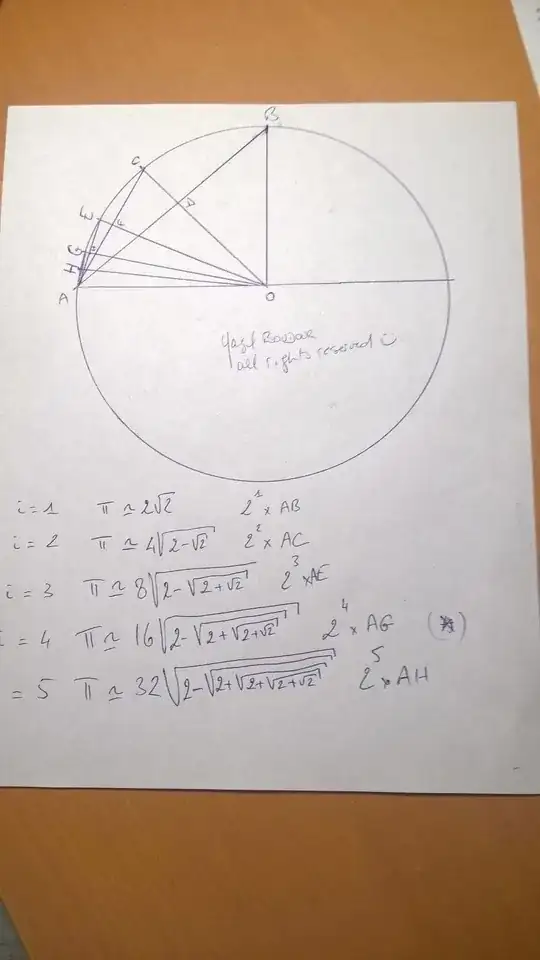 B
C
D
E
F
G
H
A
O
all rights reserved
i = 1 π ≃ 2√2 2^1 × AB
i = 2 π ≃ 4√(2-√2) 2^2 × AC
i = 3 π ≃ 8√(2-√(2+√2)) 2^3 × AE
i = 4 π ≃ 16√(2-√(2+√(2+√2))) 2^4 × AG (*)
= 5 π ≃ 32√(2-√(2+√(2+√(2+√2)))) 2^5 × AH